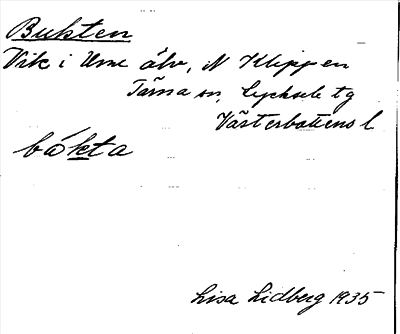 Bukten
Vik i Ume älv, N Klippen
Tärna sn, Lycksele tg
Västerbottens l
bókta
Lisa Lidberg 1935